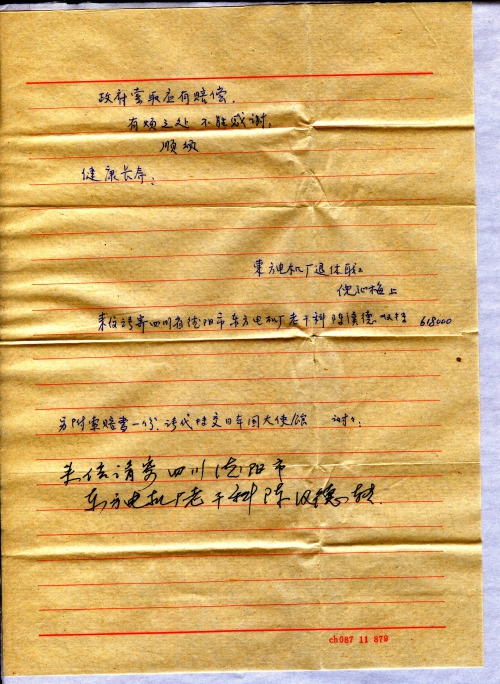 政府索取应有赔偿,
有烦之处 不胜感谢,
顺颂
健康长寿,
东方电机厂退休职工
倪 梅上
来信请寄四川省德阳市东方电机厂老干科陈汉德 618000
另附索赔书一份,请代转交日本国大使馆 谢!
来信请寄四川德阳市
东方电机厂老干科陈汉德转.
ch087 11 879